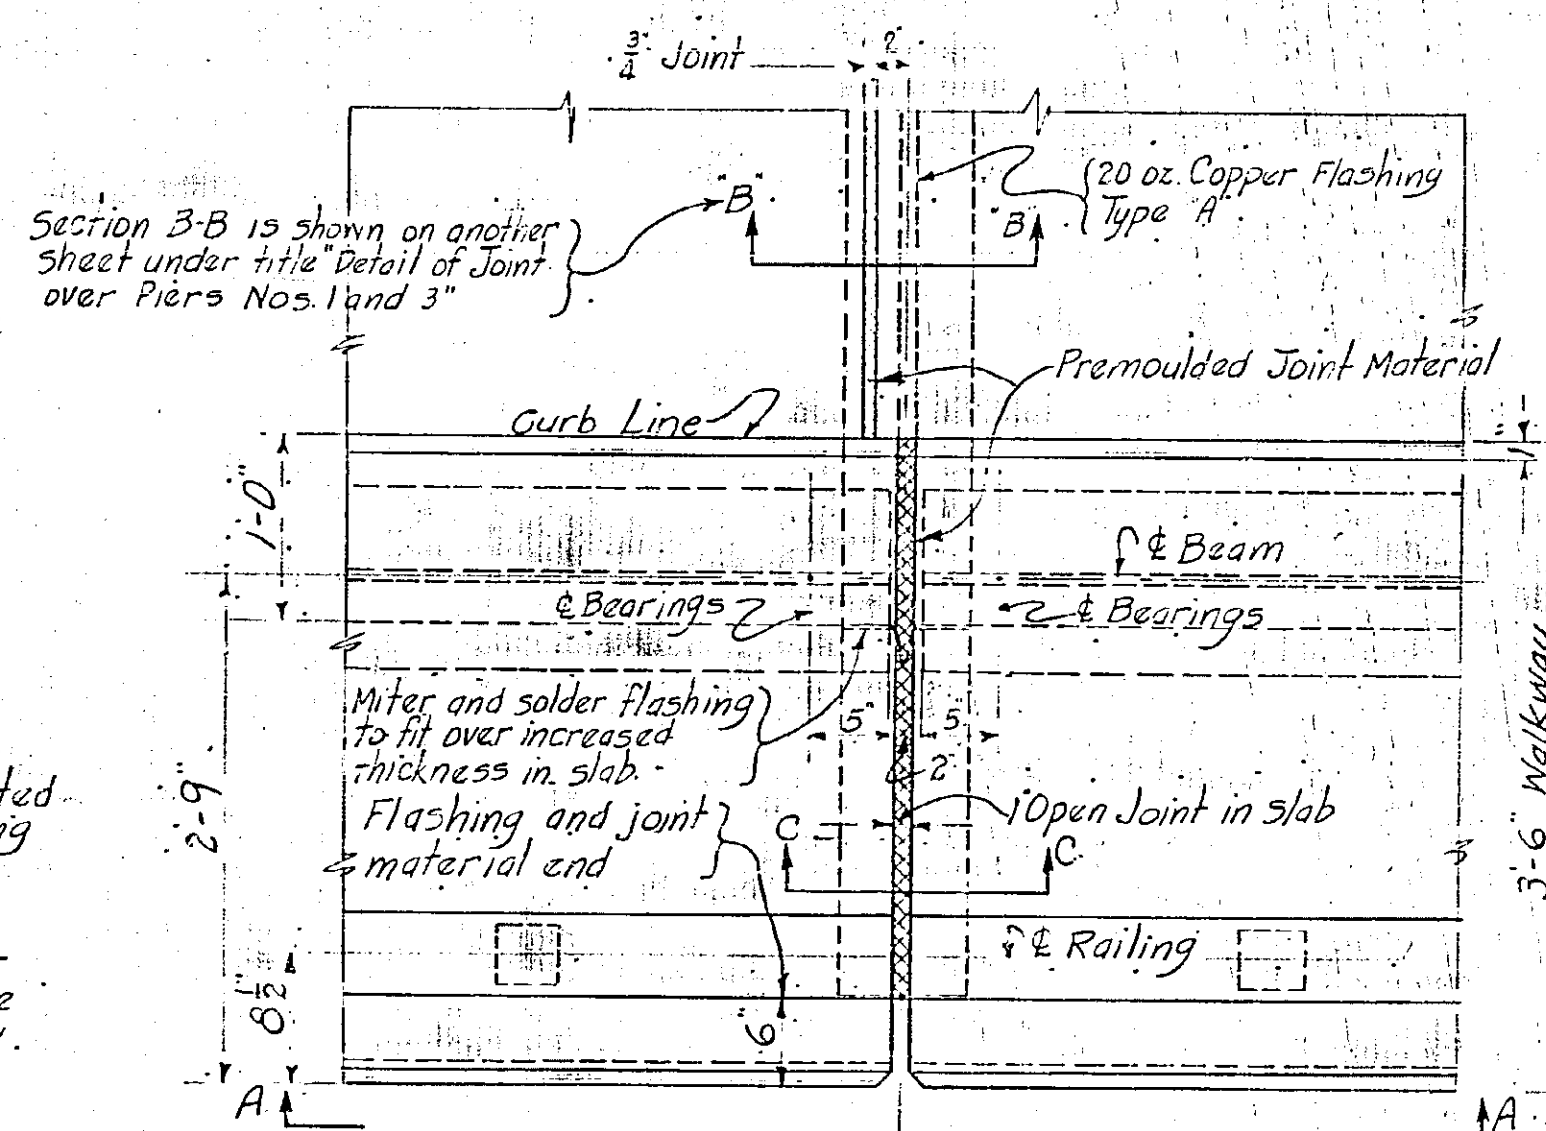 3/4" Joint
2"
Section B-B is shown on another
sheet under title "Detail of Joint
over Piers Nos. 1 and 3"
"B"
"B"
20 oz. Copper Flashing
Type "A"
Premoulded Joint Material
Curb Line
1"
1'-0"
℄ Beam
℄ Bearings
℄ Bearings
Miter and solder flashing
to fit over increased
thickness in slab.
5"
5"
2"
2'-9"
3'-6" Walkway
Flashing and joint
material end
1" Open Joint in slab
C
C
℄ Railing
8 1/2"
6"
A
A